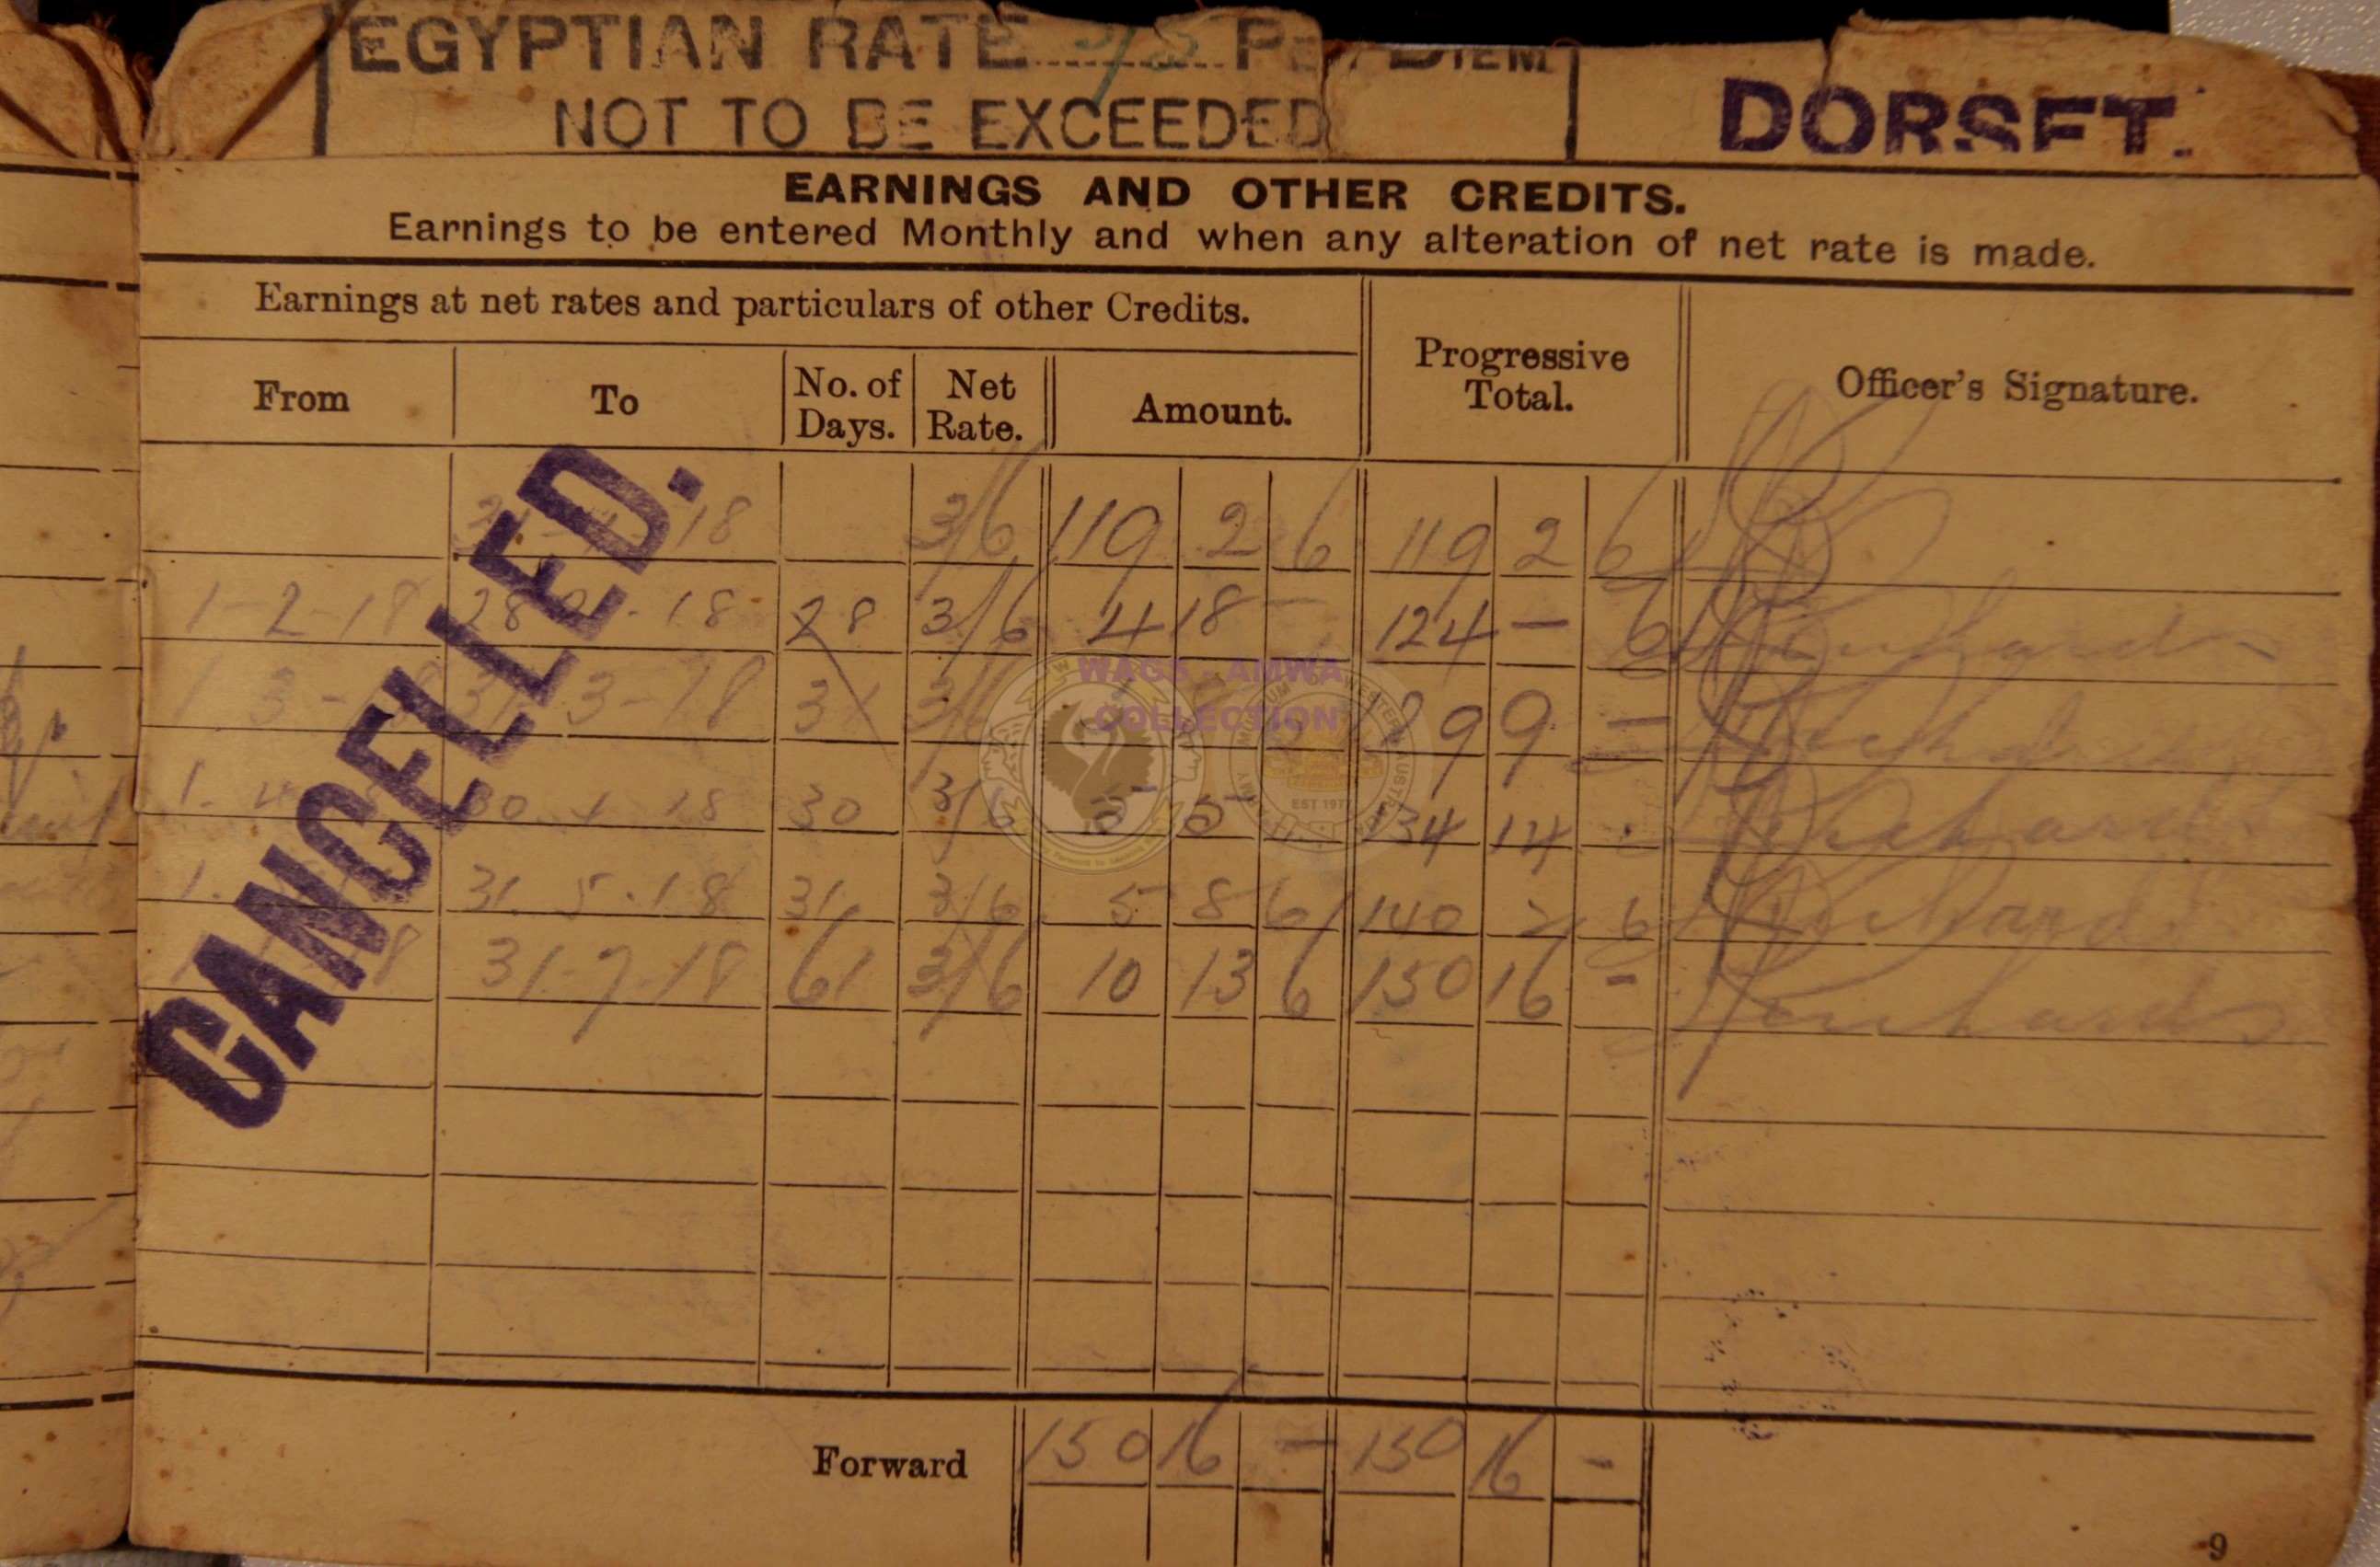 EGYPTIAN RATE PER DIEM
NOT TO BE EXCEEDED
DORSET.
EARNINGS AND OTHER CREDITS.
Earnings to be entered Monthly and when any alteration of net rate is made.
Earnings at net rates and particulars of other Credits.
From To No. of Days. Net Rate. Amount. Progressive Total. Officer's Signature.
18 3/6 119 2 6 119 2 6
1-2-18 28 18 28 3/6 4 18 — 124 — 6
3 31 3-18 31 9 —
1. 30 18 30 3/6 5 5 134 14
1. 31.5.18 31 3/6 5 8 6 140 2 6 Richards
18 31-7-18 61 3/6 10 13 6 150 16 - Richards
CANCELLED.
WAGS - AMWA
COLLECTION
EST 1977
Forward 150 16 — 150 16 -
9